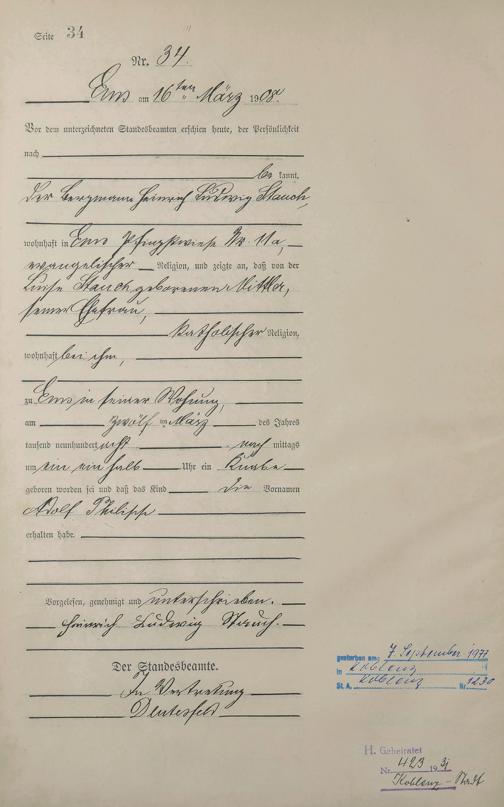 Seite 34
Nr. 34.
Ems am 16ten März 1908.
Vor dem unterzeichneten Standesbeamten erschien heute, der Persönlichkeit
nach
be kannt,
der Bergmann Heinrich Ludwig Stauch,
wohnhaft in Ems Pfingstwiese Nr. 11a,
evangelischer Religion, und zeigte an, daß von der
Luise Stauch geborenen
seiner Ehefrau,
katholischer Religion,
wohnhaft bei ihm,
zu Ems in seiner Wohnung,
am zwölf ten März des Jahres
tausend neunhundert acht nach mittags
um ein ein halb Uhr ein Knabe
geboren worden sei und daß das Kind die Vornamen
Adolf Philipp
erhalten habe.
Vorgelesen, genehmigt und unterschrieben.
Heinrich Ludwig Stauch.
Der Standesbeamte.
In Vertretung
gestorben am 7. September 1977
in Koblenz
St. A. Koblenz Nr. 1230
H. Geheiratet
Nr. 423 1931
Koblenz-Stadt